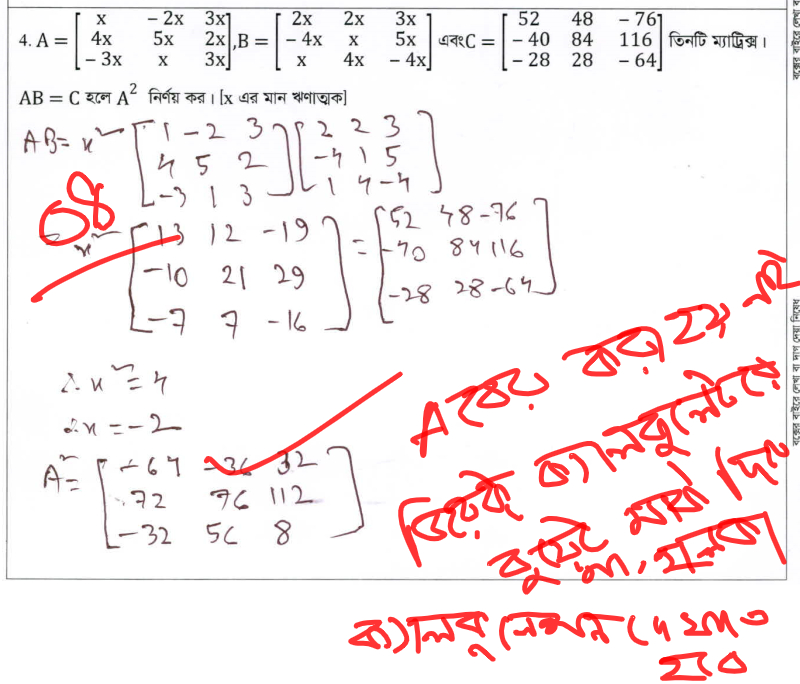 4. A = [x -2x 3x; 4x 5x 2x; -3x x 3x], B = [2x 2x 3x; -4x x 5x; x 4x -4x] এবং C = [52 48 -76; -40 84 116; -28 28 -64] তিনটি ম্যাট্রিক্স।
AB = C হলে A² নির্ণয় কর। [x এর মান ঋণাত্মক]
AB = x² [1 -2 3; 4 5 2; -3 1 3] [2 2 3; -4 1 5; 1 4 -4]
08
= x² [13 12 -19; -10 21 29; -7 7 -16] = [52 48 -76; -40 84 116; -28 28 -64]
∴ x² = 4
∴ x = -2
A² = [-64 -36 32; 72 76 112; -32 56 8]
A বের করা হয় নাই
ক্যালকুলেটরে
মার্ক দিব
না,
ক্যালকুলেশন দেখাতে
হবে